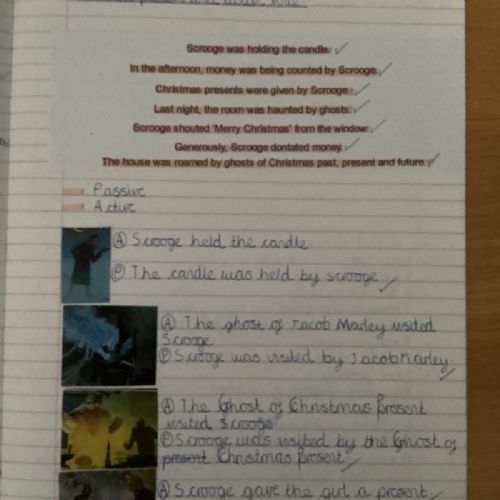 Scrooge was holding the candle.
In the afternoon, money was being counted by Scrooge.
Christmas presents were given by Scrooge.
Last night, the room was haunted by ghosts.
Scrooge shouted 'Merry Christmas' from the window.
Generously, Scrooge dontated money.
The house was roamed by ghosts of Christmas past, present and future.
Passive
Active
A Scrooge held the candle
P The candle was held by scrooge.
A The ghost of Jacob Marley visited
Scrooge
P Scrooge was visited by Jacob Marley.
A The Ghost of Christmas Present
visited Scrooge
P Scrooge was visited by the Ghost of
present Christmas Present
A Scrooge gave the girl a present